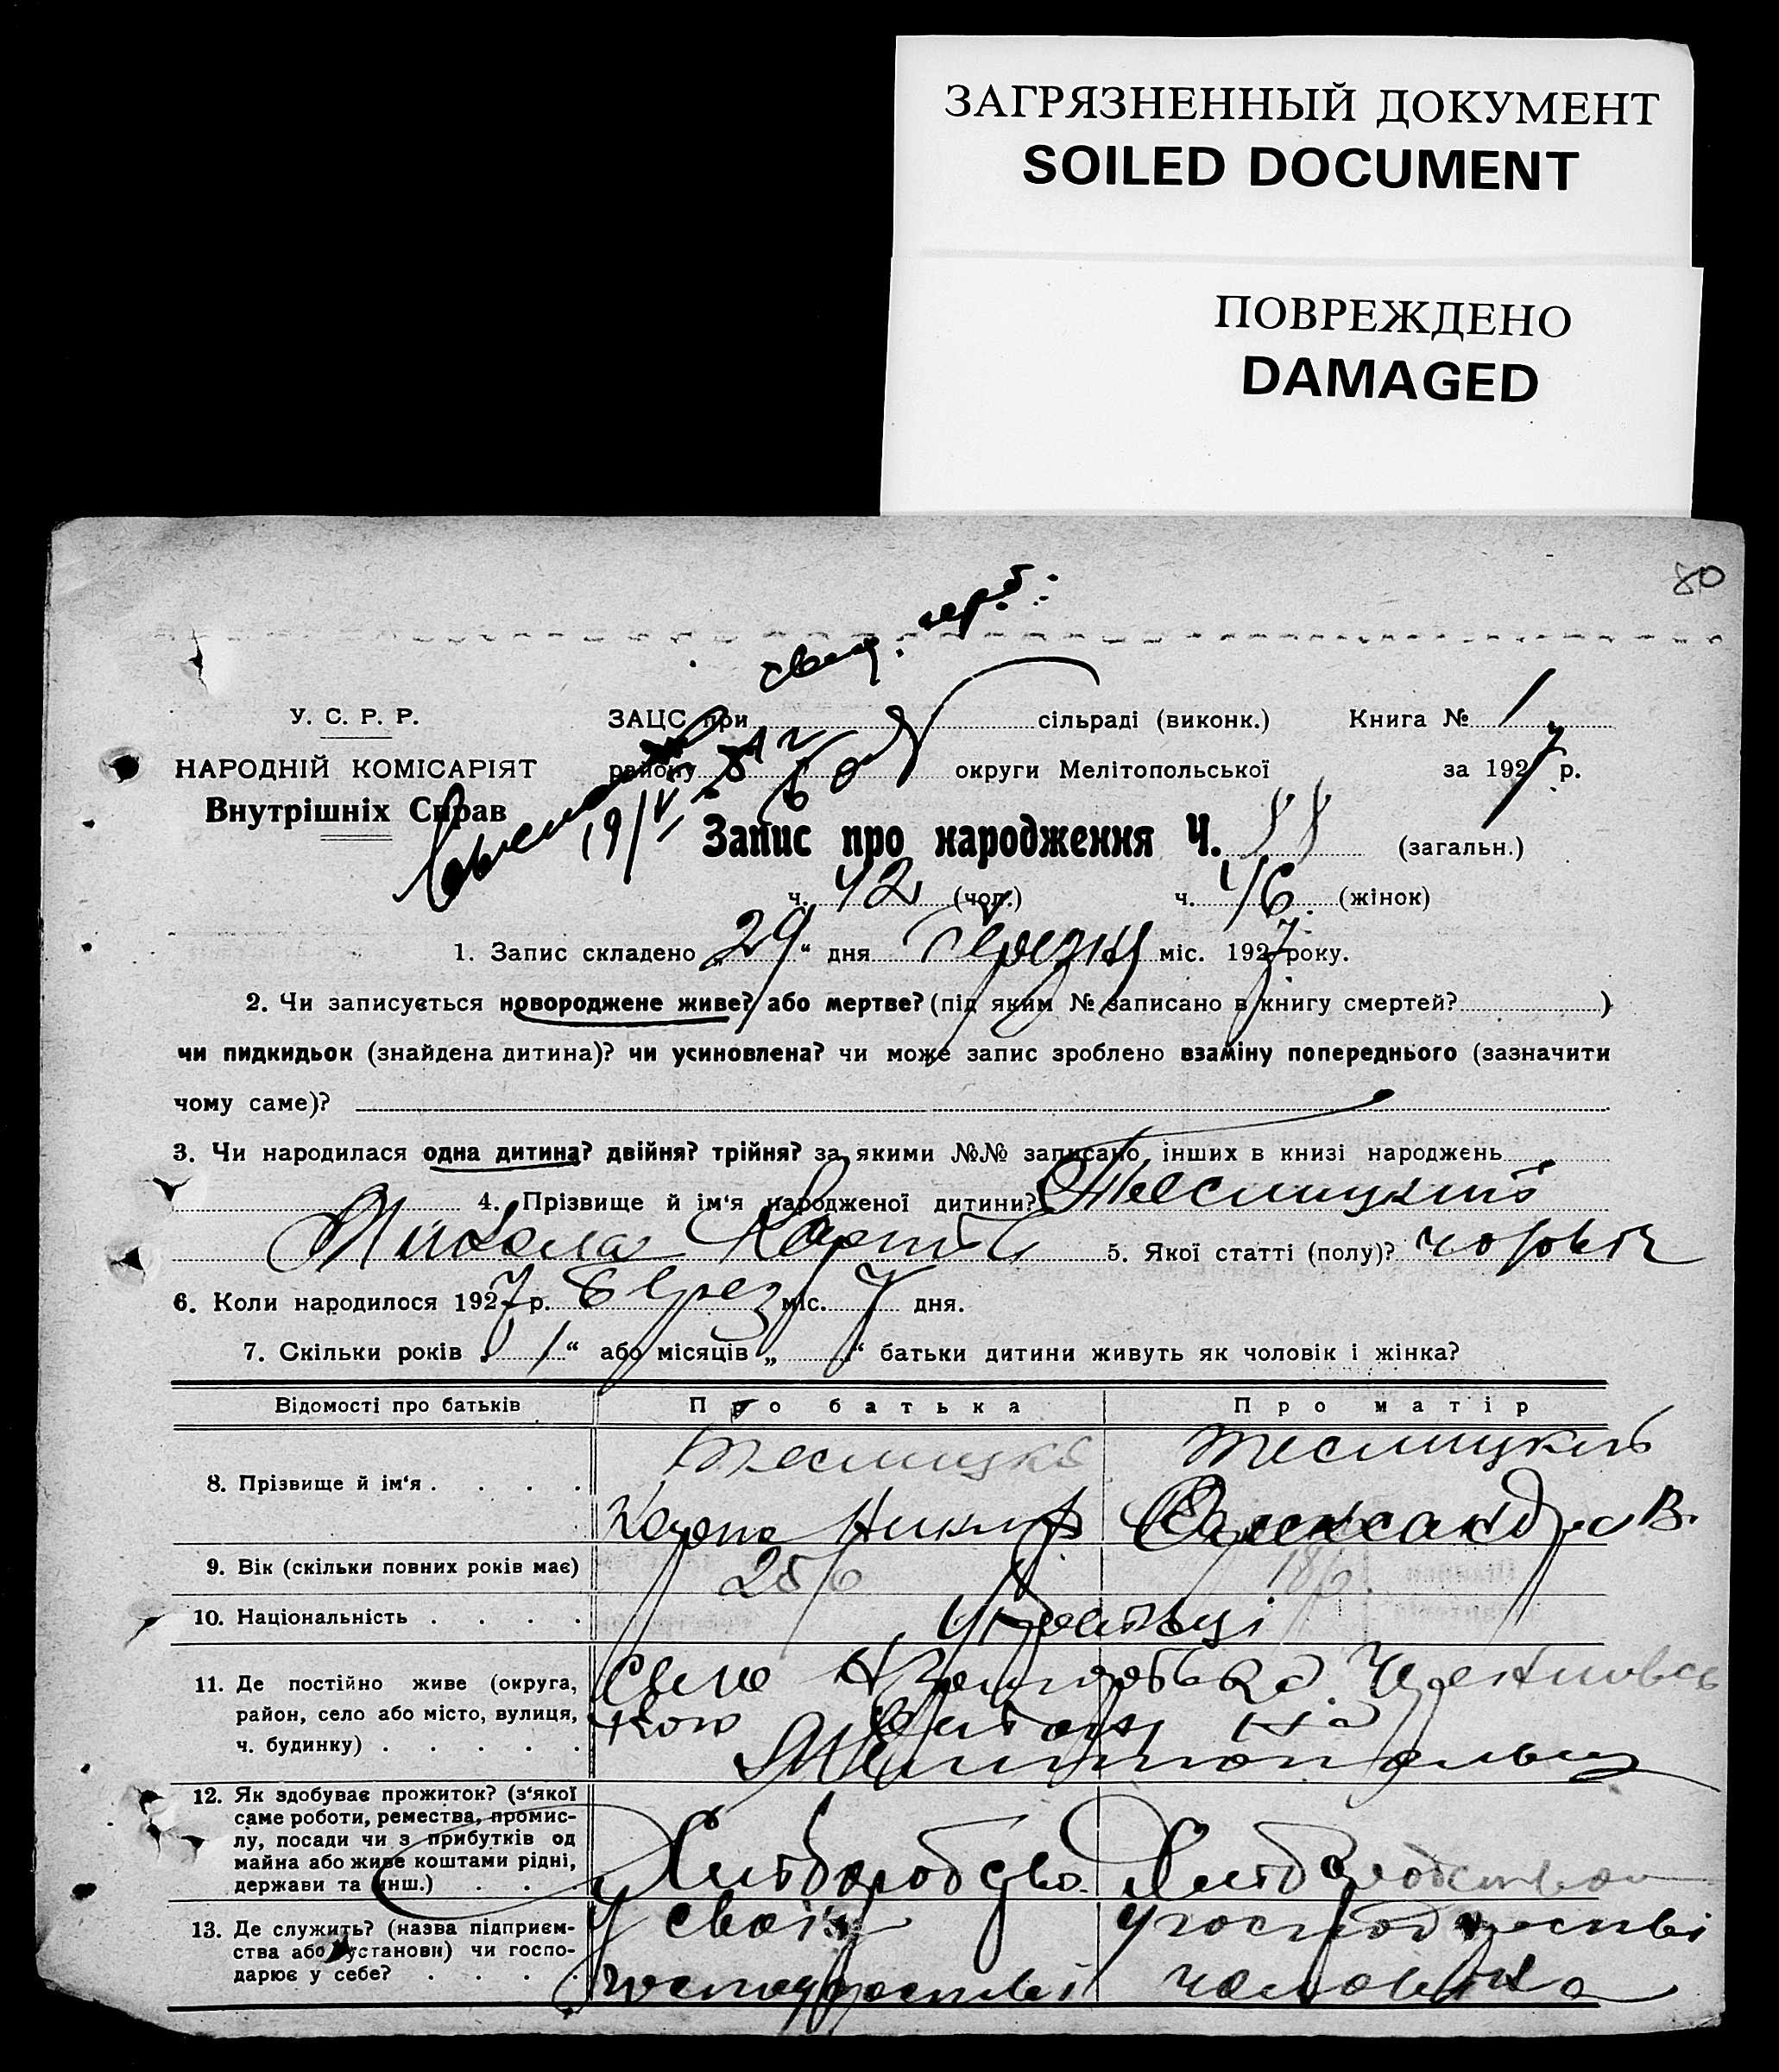 ЗАГРЯЗНЕННЫЙ ДОКУМЕНТ
SOILED DOCUMENT
ПОВРЕЖДЕНО
DAMAGED
80
У. С. Р. Р.
НАРОДНІЙ КОМІСАРІЯТ
Внутрішніх Справ
ЗАЦС при сільраді (виконк.) Книга № 1
району округи Мелітопольської за 1927 р.
Запис про народження Ч. 88 (загальн.)
ч. 42 (чол.) ч. 46 (жінок)
1. Запис складено „29“ дня березня міс. 1927 року.
2. Чи записується новороджене живе? або мертве? (під яким № записано в книгу смертей? )
чи пидкидьок (знайдена дитина)? чи усиновлена? чи може запис зроблено взаміну попереднього (зазначити
чому саме)?
3. Чи народилася одна дитина? двійня? трійня? за якими №№ записано інших в книзі народжень
4. Прізвище й ім'я народженої дитини?
Микола Карпів 5. Якої статті (полу)? чоловік
6. Коли народилося 1927 р. Берез міс. 7 дня.
7. Скільки років „1“ або місяців „ “ батьки дитини живуть як чоловік і жінка?
Відомості про батьків Про батька Про матір
8. Прізвище й ім'я . . . .
Карпо Никиф Олександра В.
9. Вік (скільки повних років має) 25 18
10. Національність . . . . Українці
11. Де постійно живе (округа, Село
район, село або місто, вулиця,
ч. будинку) . . . . .
12. Як здобуває прожиток? (з'якої
саме роботи, ремества, промис-
лу, посади чи з прибутків од
майна або живе коштами рідні, Хліборобство
держави та инш.) . . .
13. Де служить? (назва підприєм- У своїм у господарстві
ства або установи) чи госпо-
дарює у себе? . . . . господарстві чоловіка